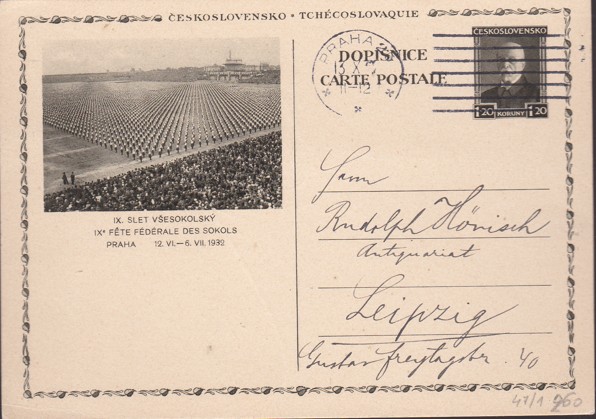 ČESKOSLOVENSKO • TCHÉCOSLOVAQUIE
DOPISNICE
CARTE POSTALE
PRAHA
11-12
ČESKOSLOVENSKO
1·20 KORUNY 1·20
IX. SLET VŠESOKOLSKÝ
IXᵉ FÊTE FÉDÉRALE DES SOKOLS
PRAHA 12. VI.—6. VII. 1932
Herrn
Rudolph Hönisch
Antiquariat
Leipzig
Gustav Freytagstr. 40